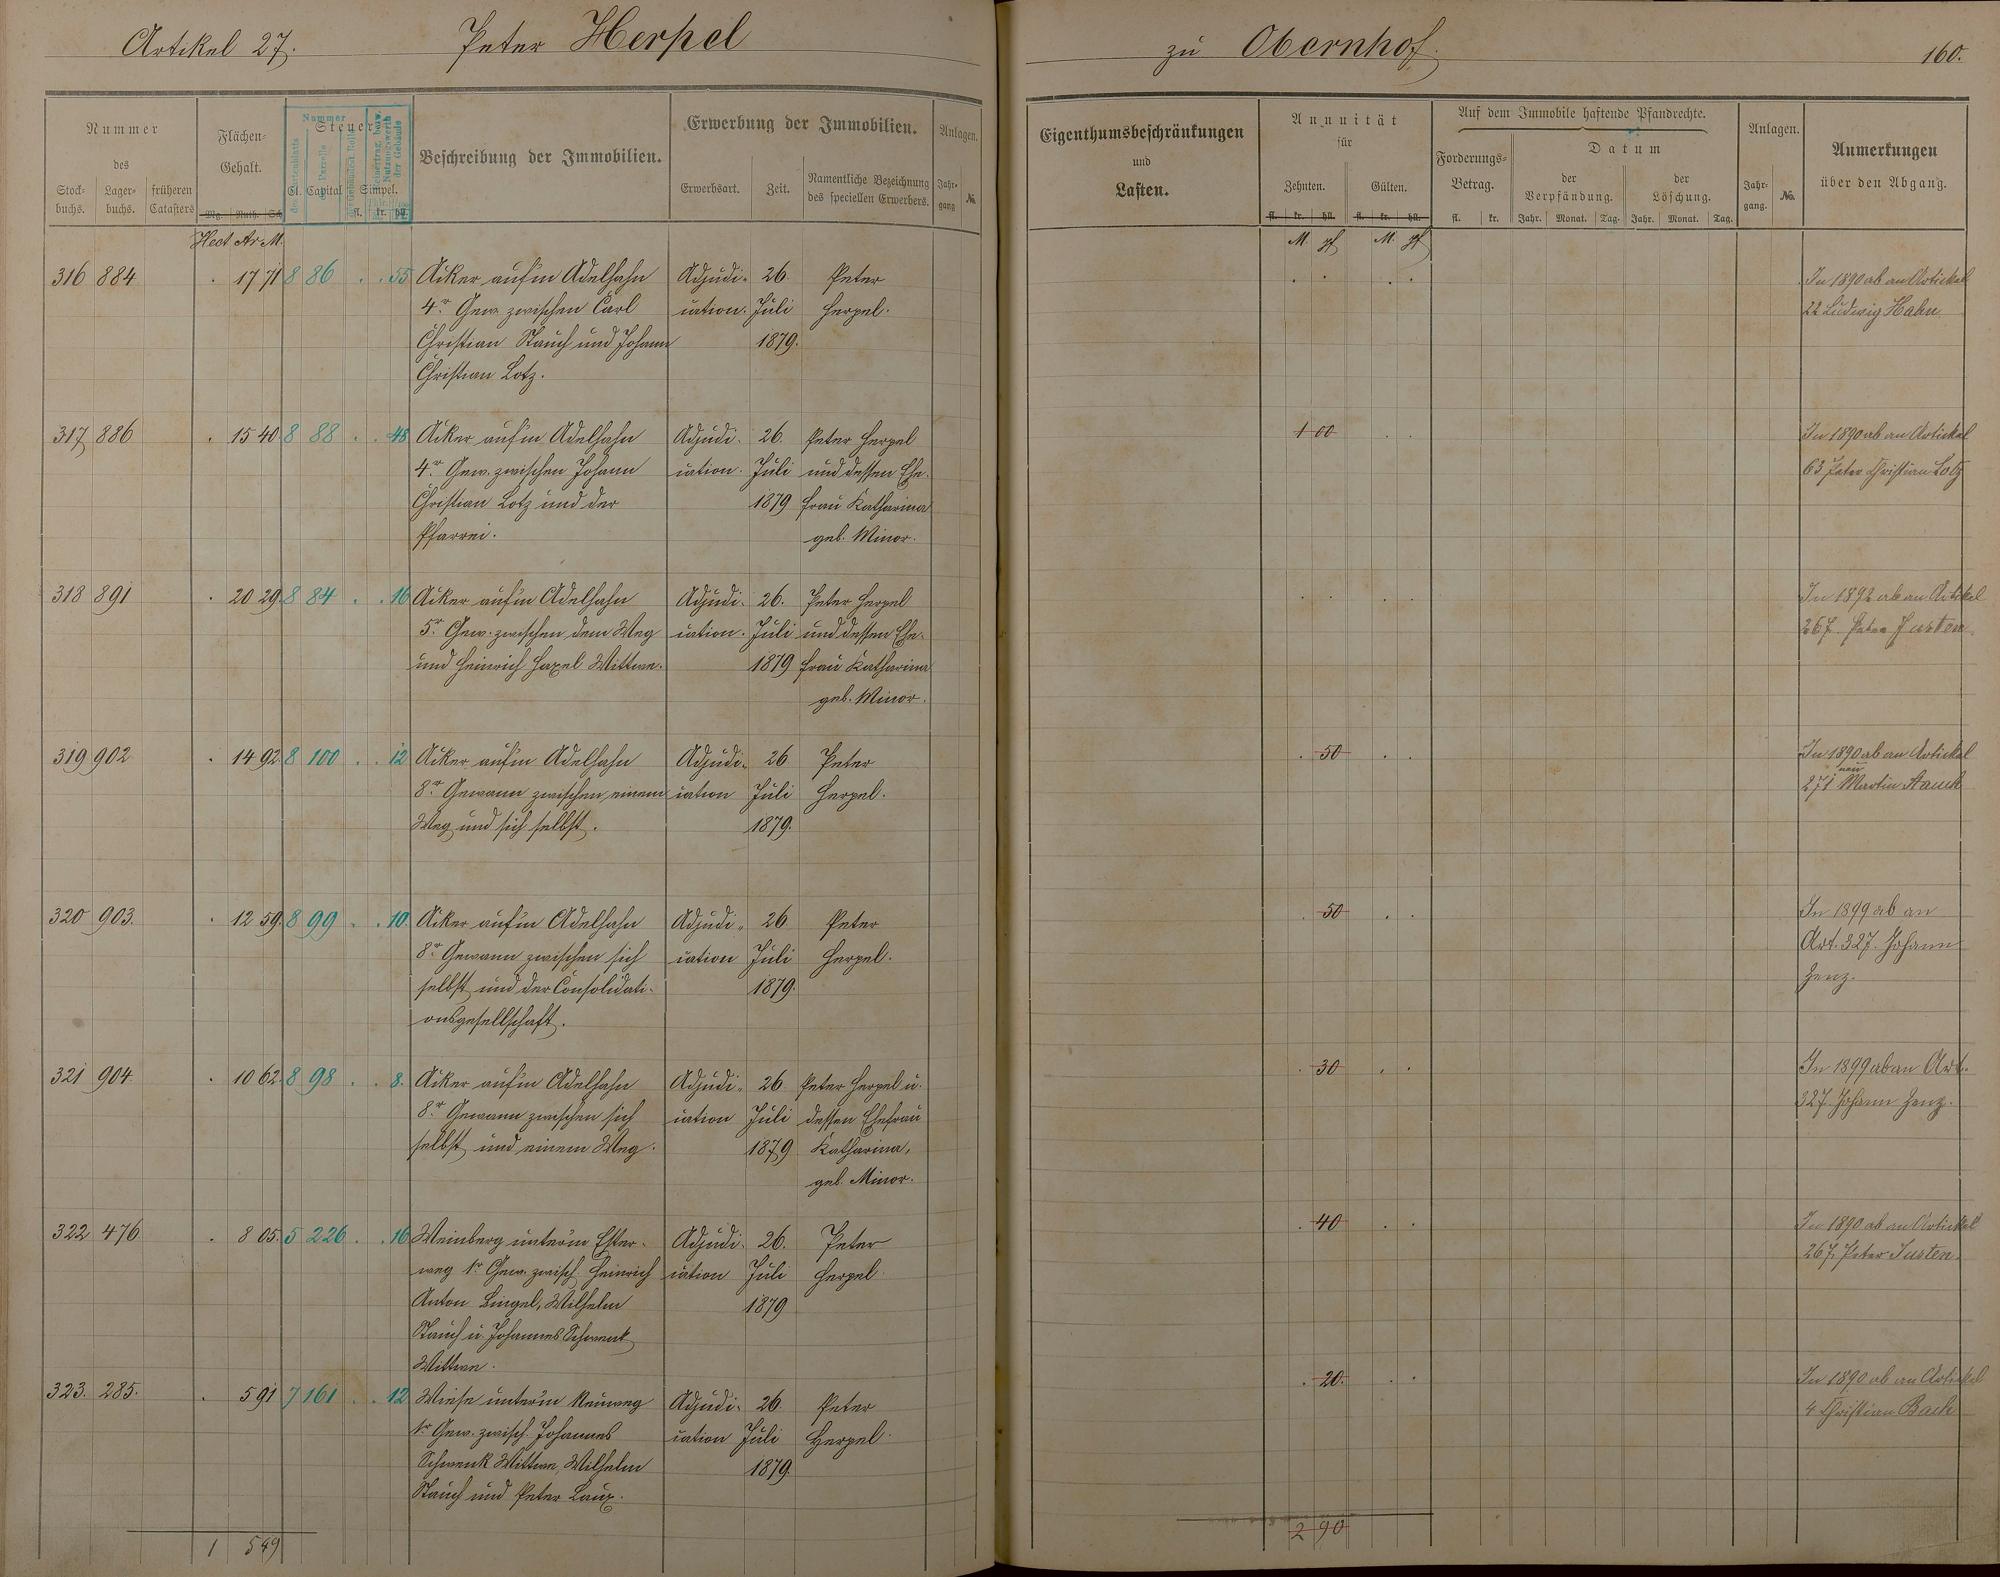 Artikel 27. Peter Herpel zu Obernhof. 160.
Nummer
des
Stock-buchs. Lager-buchs. früheren Catasters
Flächen-Gehalt.
Mg. Ruth. Sch
Steuer
Cl. Capital Simpel.
fl. kr. hll.
Nummer
des Kartenblatts
der Parzelle
Beschreibung der Immobilien.
Erwerbung der Immobilien.
Erwerbsart. Zeit. Namentliche Bezeichnung des speciellen Erwerbers.
Anlagen.
Jahr-gang №
Eigenthumsbeschränkungen
und
Lasten.
Annuität
für
Zehnten. Gülten.
fl. kr. hll. fl. kr. hll.
Auf dem Immobile haftende Pfandrechte.
Forderungs-Betrag.
fl. kr.
Datum
der Verpfändung. der Löschung.
Jahr. Monat. Tag. Jahr. Monat. Tag.
Anlagen.
Jahr-gang. №.
Anmerkungen
über den Abgang.
Hect Ar M.
M. pf M. pf
316 884 . 17 71 8 86 . . 55 Acker auf'm Adelhahn Adjudi- 26 Peter In 1890 ab an Artickel
4r. Gew. zwischen Carl cation. Juli Herpel. 22 Ludwig Hahn
Christian Stauch und Johann 1879.
Christian Lotz.
317 886 . 15 40 8 88 . . 48 Acker auf'm Adelhahn Adjudi- 26. Peter Herpel 1 00 In 1890 ab an Artickel
4r. Gew. zwischen Johann cation. Juli und dessen Ehe- 63 Peter Christian Lotz
Christian Lotz und der 1879 frau Katharina
Pfarrei. geb. Minor.
318 891 . 20 29. 8 84 . . 16 Acker auf'm Adelhahn Adjudi- 26. Peter Herpel In 1892 ab an Artikel
5r Gew. zwischen dem Weg cation. Juli und dessen Ehe- 267. Peter Justen
und Heinrich Wittwe. 1879 frau Katharina
geb. Minor.
319 902 . 14 92. 8 100 . . 12 Acker auf'm Adelhahn Adjudi- 26 Peter . 50 In 1890 ab an Artickel
8r. Gewann zwischen einem cation Juli Herpel. 271 neu Martin Stauch
Weg und sich selbst. 1879.
320 903. . 12 59. 8 99 . . 10. Acker auf'm Adelhahn Adjudi- 26 Peter . 50 In 1899 ab an
8r. Gewann zwischen sich cation Juli Herpel. Art. 327. Johann
selbst und der Consolidati- 1879. Zenz.
onsgesellschaft.
321 904. . 10 62. 8 98 . . 8. Acker auf'm Adelhahn Adjudi- 26. Peter Herpel u. . 30 In 1899 ab an Art.
8r. Gewann zwischen sich cation Juli dessen Ehefrau 327. Johann Zenz.
selbst und einem Weg. 1879 Katharina,
geb. Minor.
322 476 . 8 05. 5 226 . . 16 Weinberg unter'm Adjudi- 26. Peter . 40 In 1890 ab an Artickel
weg 1r Gew. zwisch. Heinrich cation Juli Herpel 267, Peter Justen.
Anton Lingel, Wilhelm 1879
Stauch u. Johannes Schwenk
Wittwe.
323. 285. . 5 91 7 161 . . 12 Wiese unter'm Neuweg Adjudi- 26 Peter . 20. In 1890 ab an Artickel
1r Gew. zwisch. Johannes cation Juli Herpel. 4 Christian Bach
Schwenk Wittwe, Wilhelm 1879.
Stauch und Peter Laux.
1 5 49 2 90